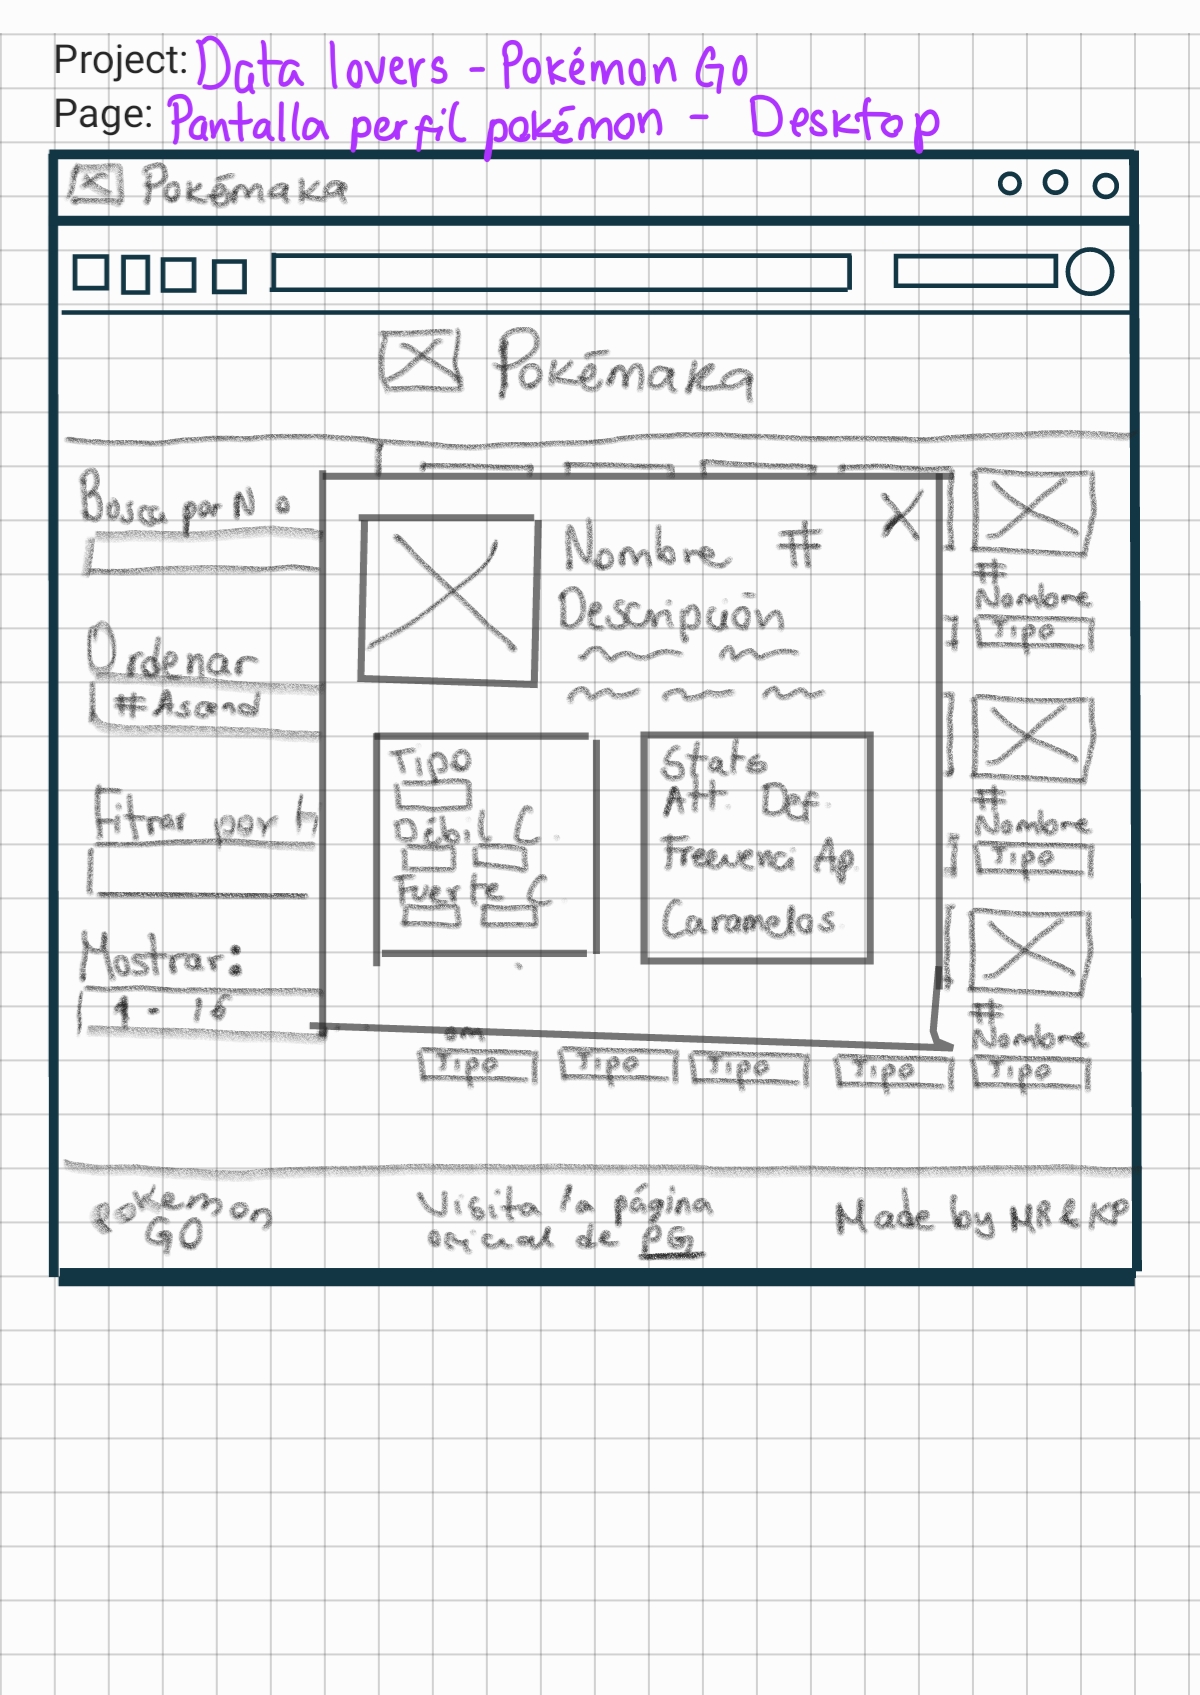 Project: Data lovers - Pokémon Go
Page: Pantalla perfil pokémon - Desktop
Pokémaka
Pokémaka
Busca por N o
Ordenar
#Ascend
Filtrar por
Mostrar:
1 - 16
Nombre #
Descripción
X
Tipo
Débil C
Fuerte C
Stats
Att Def
Frecuenci Ap
Caramelos
#
Nombre
Tipo
#
Nombre
Tipo
#
Nombre
Tipo Tipo Tipo Tipo Tipo
Pokemon
GO
Visita la página
oficial de PG
Made by MR & KP